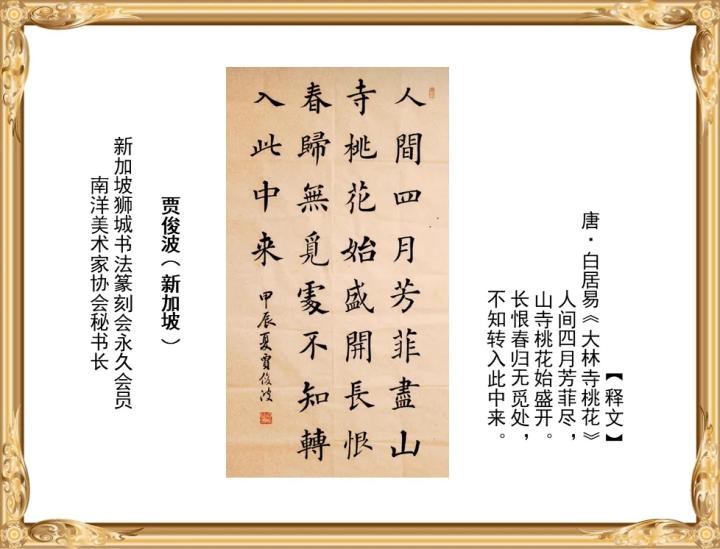 【释文】
唐·白居易《大林寺桃花》
人间四月芳菲尽，
山寺桃花始盛开。
长恨春归无觅处，
不知转入此中来。
人間四月芳菲盡山
寺桃花始盛開長恨
春歸無覓處不知轉
入此中来
甲辰夏賈俊波
贾俊波（新加坡）
新加坡狮城书法篆刻会永久会员
南洋美术家协会秘书长